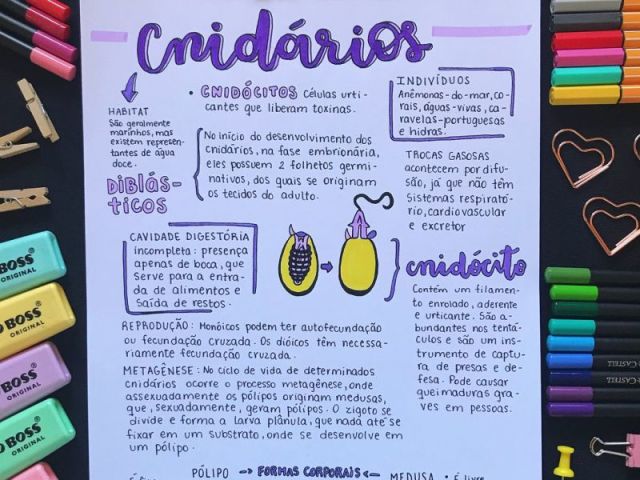 Cnidários
HABITAT
São geralmente
marinhos, mas
existem represen-
tantes de água
doce.
• CNIDÓCITOS Células urti-
cantes que liberam toxinas.
INDIVÍDUOS
Anêmonas-do-mar, co-
rais, águas-vivas, ca-
ravelas-portuguesas
e hidras.
DIBLÁS-
TICOS
No início do desenvolvimento dos
cnidários, na fase embrionária,
eles possuem 2 folhetos germi-
nativos, dos quais se originam
os tecidos do adulto.
TROCAS GASOSAS
acontecem por difu-
são, já que não têm
sistemas respirató-
rio, cardiovascular
e excretor
CAVIDADE DIGESTÓRIA
incompleta: presença
apenas de boca, que
serve para a entra-
da de alimentos e
saída de restos.
cnidócito
Contém um filamen-
to enrolado, aderente
e urticante. São a-
bundantes nos tentá-
culos e são um ins-
trumento de captu-
ra de presas e de-
fesa. Pode causar
queimaduras gra-
ves em pessoas.
REPRODUÇÃO: Monóicos podem ter autofecundação
ou fecundação cruzada. Os dióicos têm necessa-
riamente fecundação cruzada.
METAGÊNESE: No ciclo de vida de determinados
cnidários ocorre o processo metagênese, onde
assexuadamente os pólipos originam medusas,
que, sexuadamente, geram pólipos. O zigoto se
divide e forma a larva plânula, que nada até se
fixar em um substrato, onde se desenvolve em
um pólipo.
PÓLIPO → FORMAS CORPORAIS ← MEDUSA • É livre
BOSS
ORIGINAL
BOSS
ORIGINAL
BOSS
ORIGINAL
BOSS
ORIGINAL
CASTELL